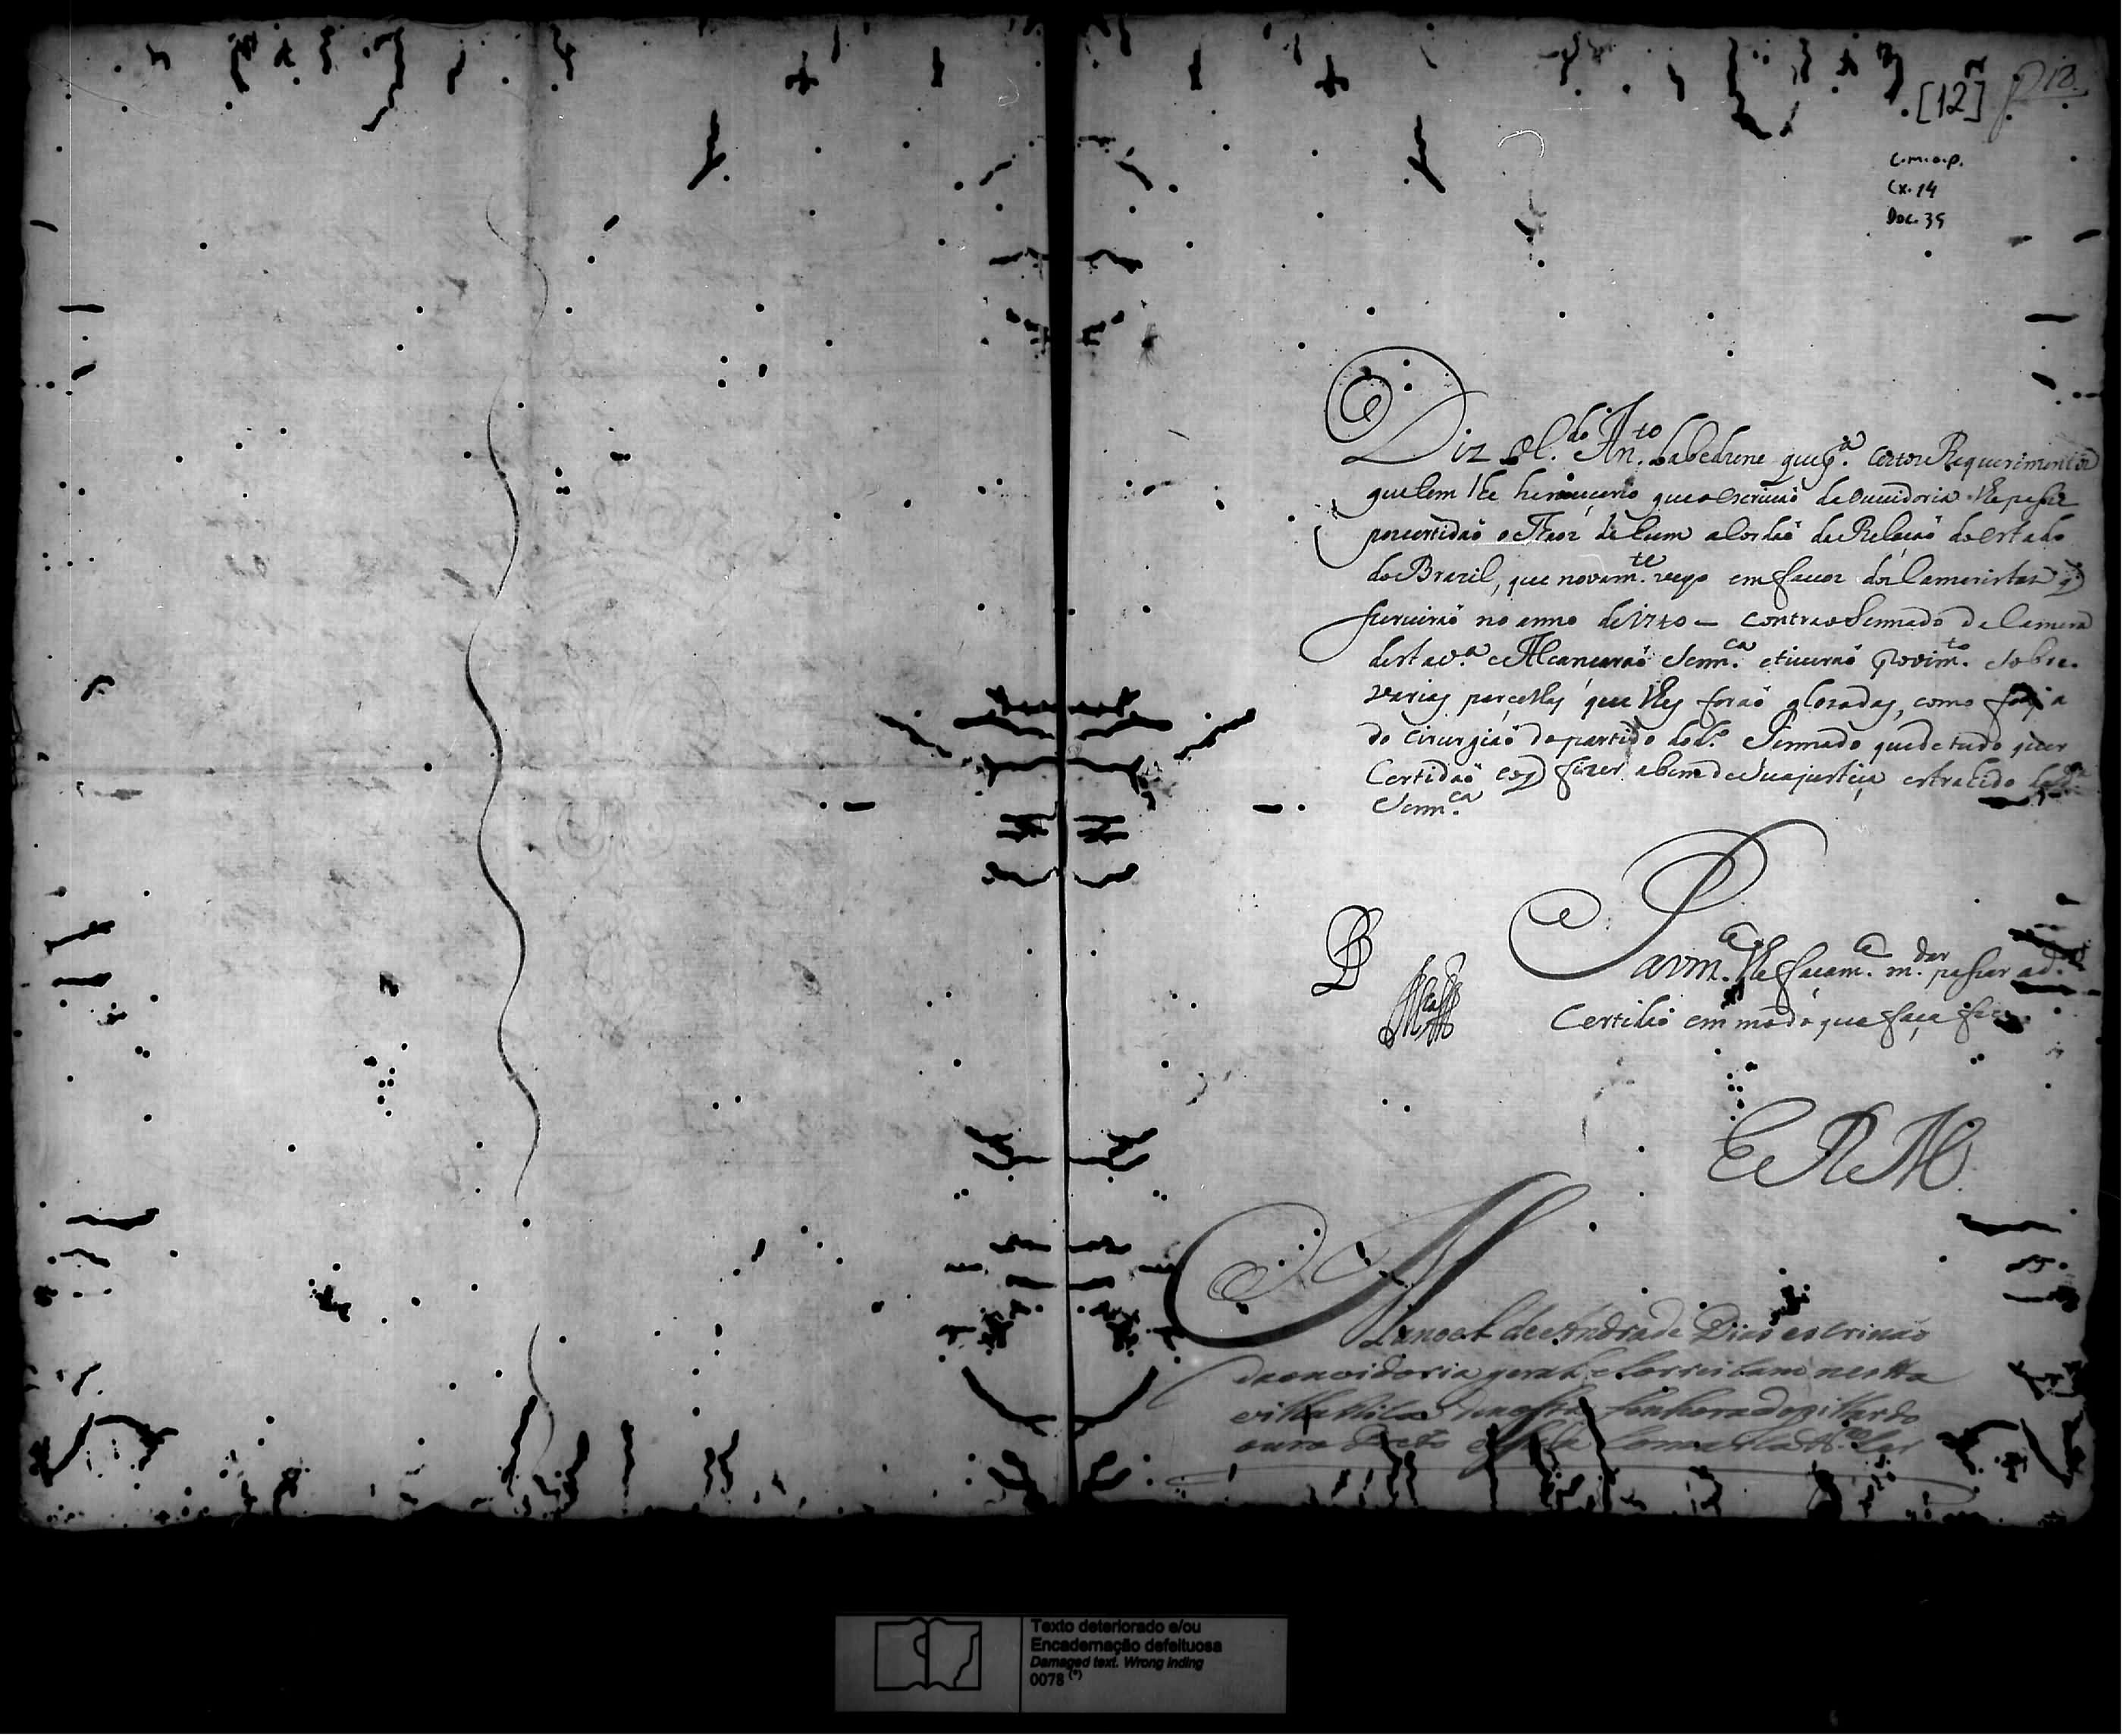 [12] 12.
C.m.o.p.
Cx. 14
Doc. 35
Diz o L.do An.to Labedrene que p.a certos Requerimentos
que tem lhe he necesr.o que o escrivaõ da ouuidoria lhe passe
por certidaõ o Theor de hum acordaõ da Relacaõ do estado
do Brazil, que novam.te veyo em fauor dos Cameristas q
seruiraõ no anno de 1740 — contra o Sennado da Camera
desta v.a e Alcancaraõ senn.ca e tiueraõ provim.to sobre
varias parcellas que lhes foraõ glozadas, como foy a
do cirurgiaõ do partido do d.o Sennado que de tudo quer
Certidaõ e o q fizer a bem de sua justiça estrahido da
Senn.ca
P a vm.ce lhe faça m.ce m.dar passar a d.a
Certidaõ em modo que faça fee
E R M.
Manoel de Andrade Dias escrivão
da ouvidoria geral e Correicam nesta
villa Rica de nossa senhora do pillar do
ouro Preto e sua Comarca
Texto deteriorado e/ou
Encadernação defeituosa
Damaged text. Wrong inding
0078 (*)